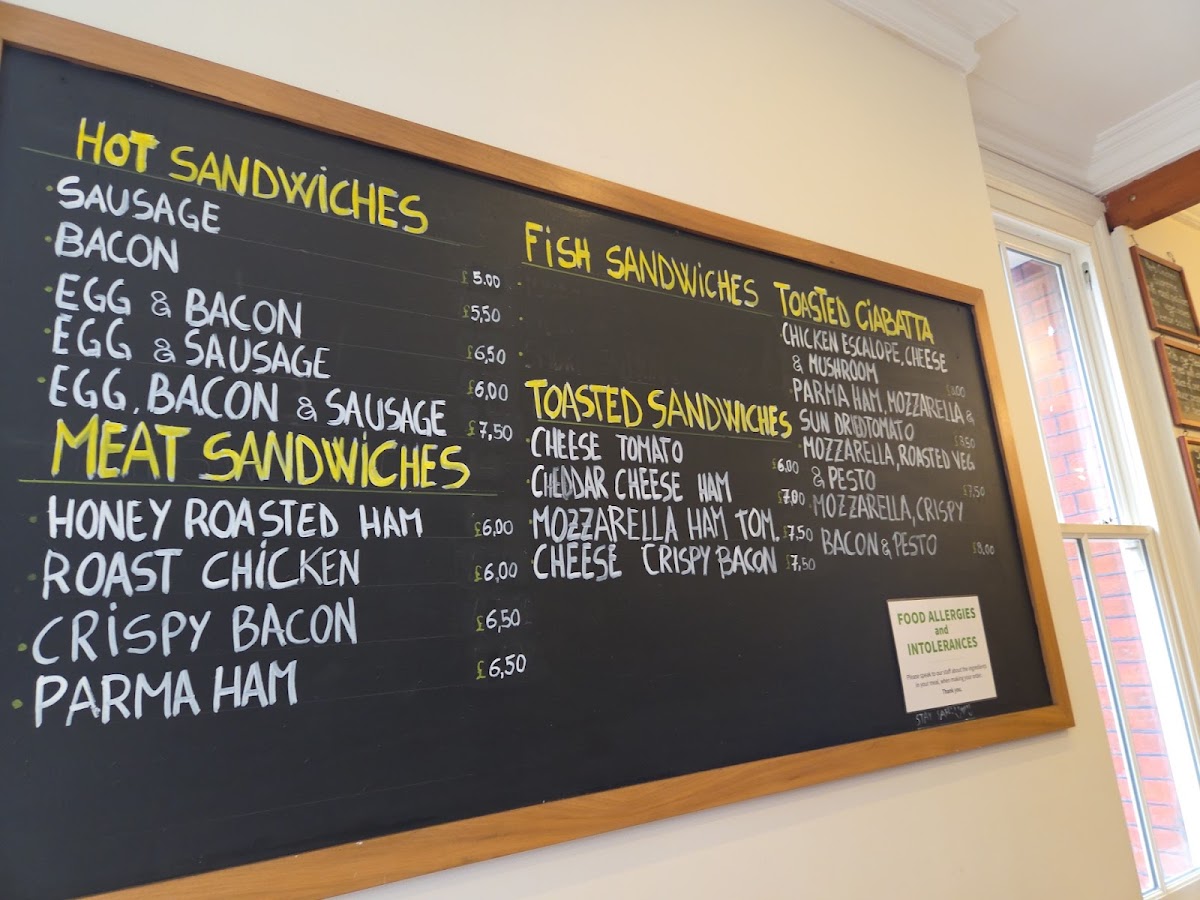 HOT SANDWICHES
SAUSAGE £5.00
BACON £5,50
EGG & BACON £6,50
EGG & SAUSAGE £6,00
EGG, BACON & SAUSAGE £7,50
MEAT SANDWICHES
HONEY ROASTED HAM £6,00
ROAST CHICKEN £6,00
CRISPY BACON £6,50
PARMA HAM £6,50
FISH SANDWICHES
TOASTED SANDWICHES
CHEESE TOMATO £6,00
CHEDDAR CHEESE HAM £7,00
MOZZARELLA HAM TOM. £7,50
CHEESE CRISPY BACON £7,50
TOASTED CIABATTA
CHICKEN ESCALOPE, CHEESE
& MUSHROOM
PARMA HAM, MOZZARELLA &
SUN DRIED TOMATO
MOZZARELLA, ROASTED VEG
& PESTO £7,50
MOZZARELLA, CRISPY
BACON & PESTO £8,00
FOOD ALLERGIES
and
INTOLERANCES
Please speak to our staff about the ingredients
in your meal, when making your order.
Thank you.